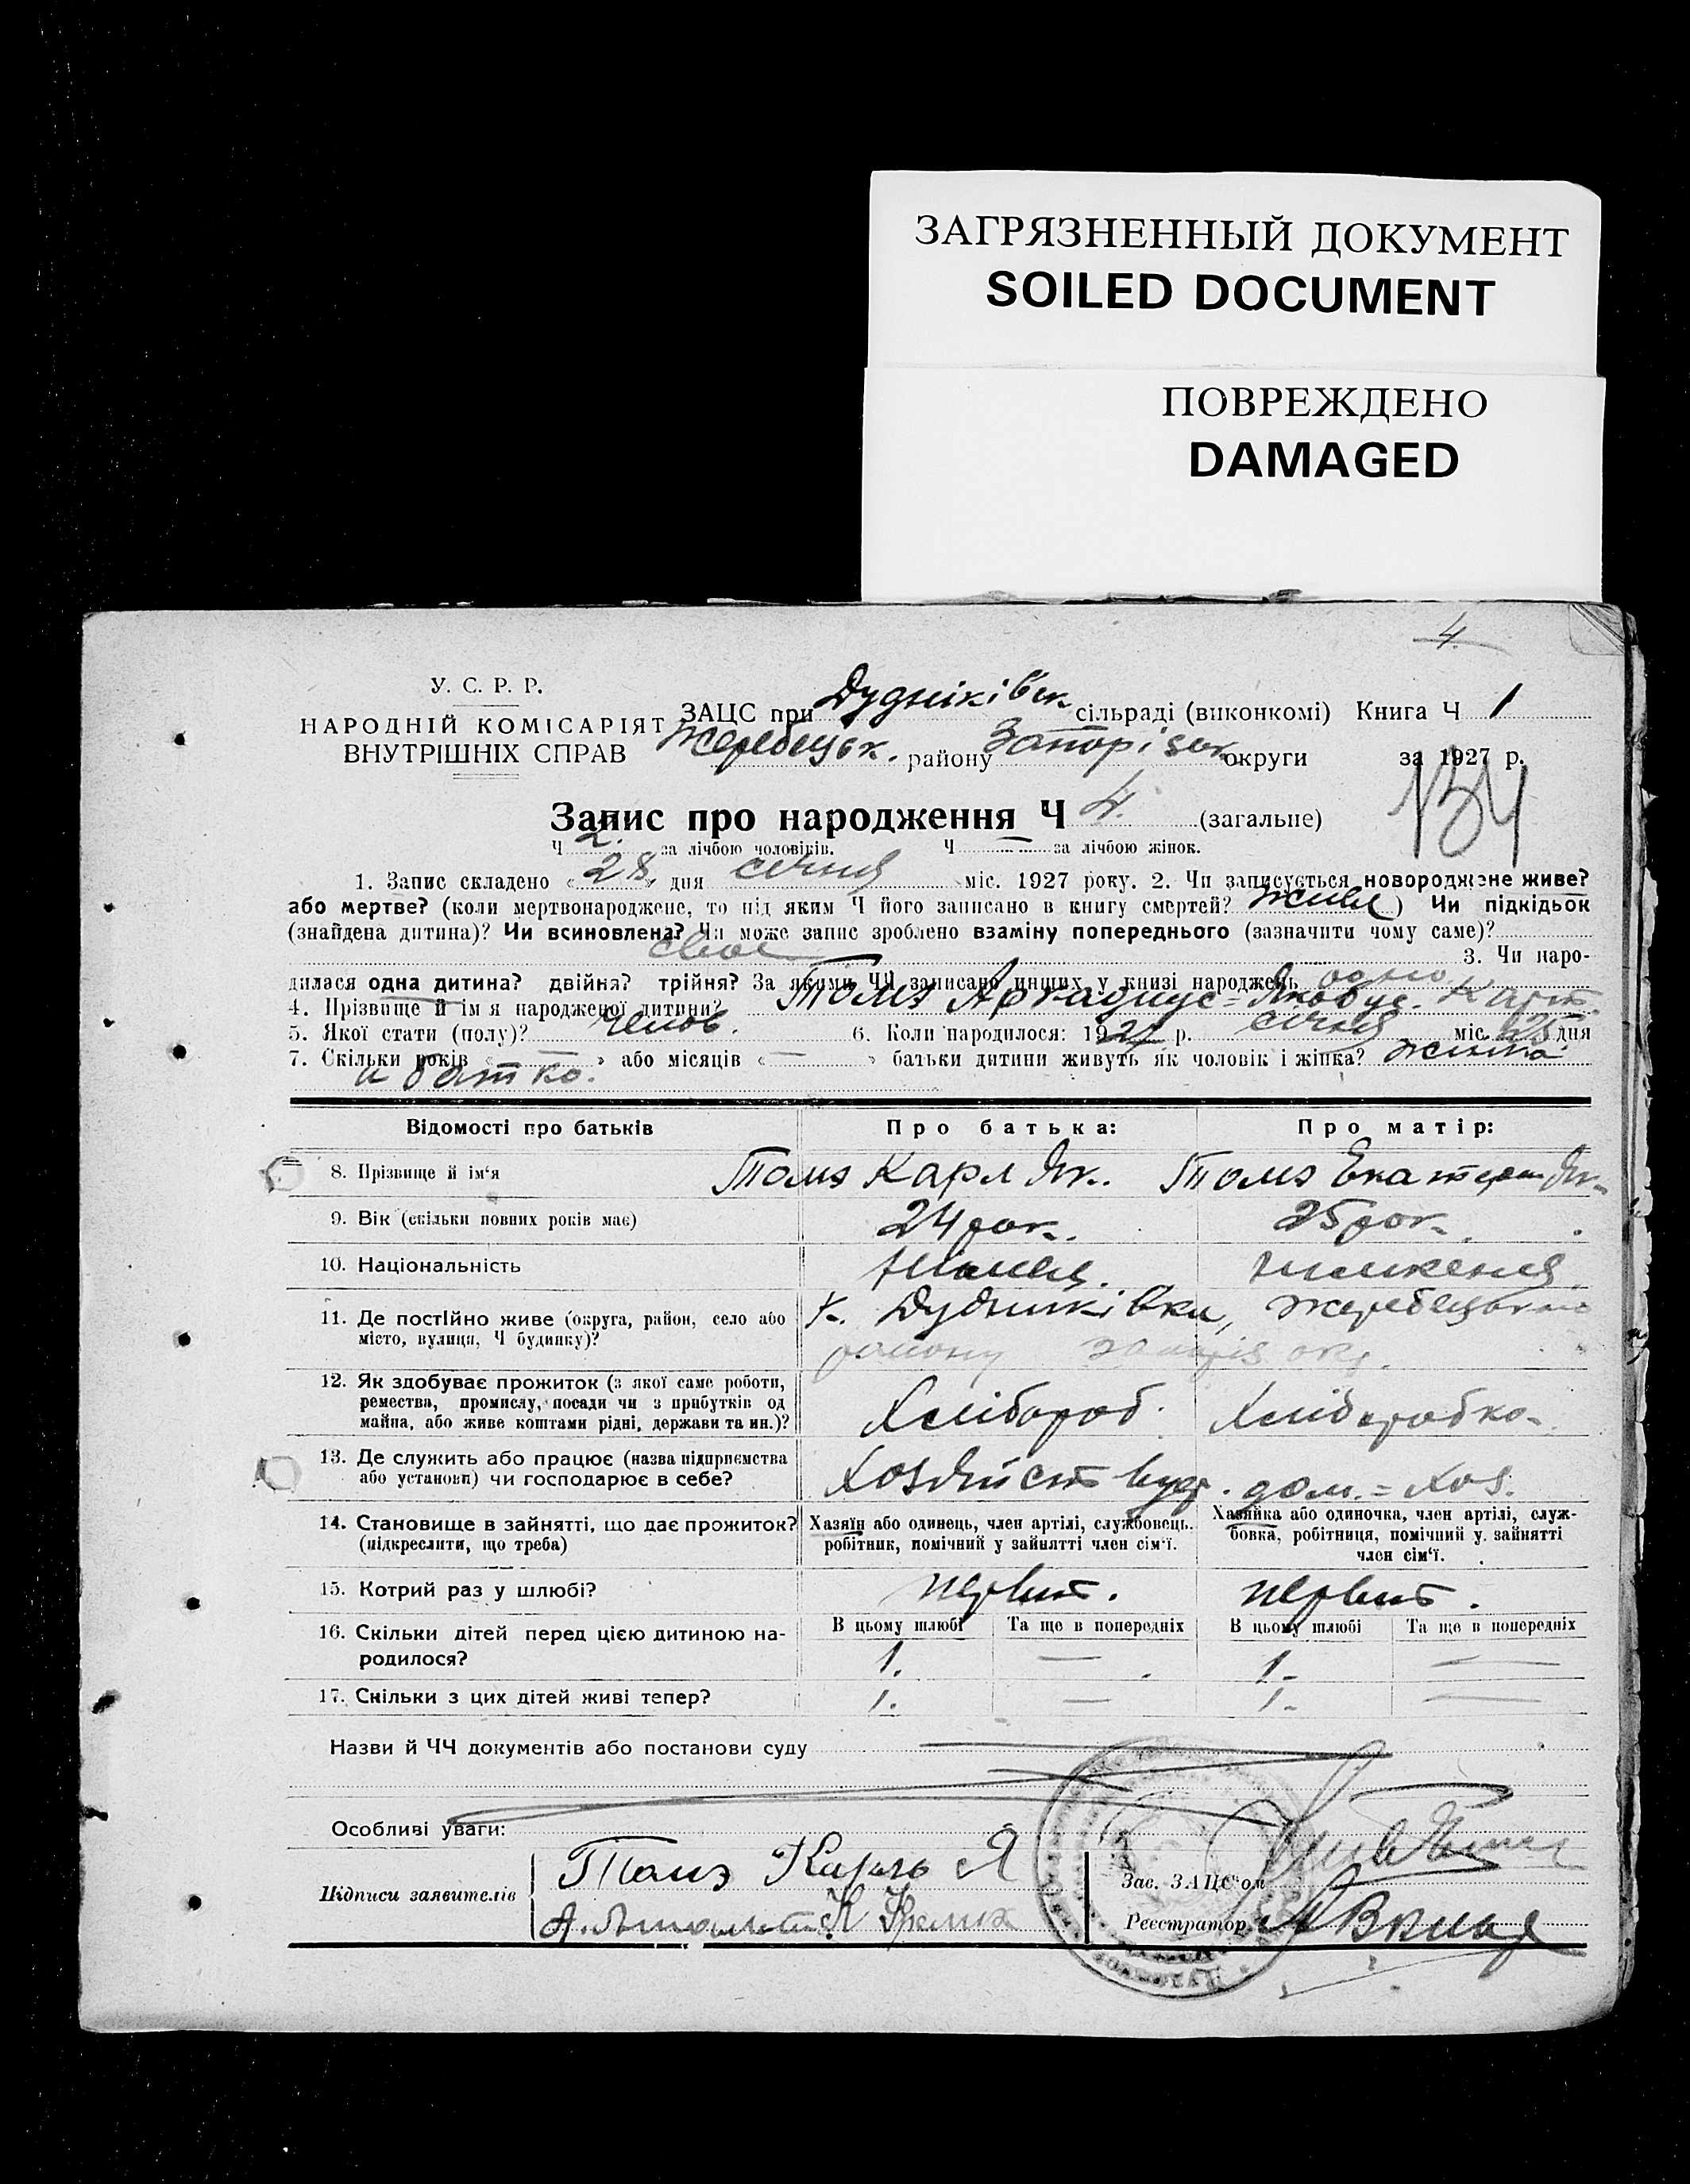 ЗАГРЯЗНЕННЫЙ ДОКУМЕНТ
SOILED DOCUMENT
ПОВРЕЖДЕНО
DAMAGED
4.
У. С. Р. Р.
НАРОДНІЙ КОМІСАРІЯТ
ВНУТРІШНІХ СПРАВ
ЗАЦС при Дудніківськ сільраді (виконкомі) Книга Ч 1
Жеребецьк. району Запорізьк округи за 1927 р.
134
Запис про народження Ч 4. (загальне)
Ч 2. за лічбою чоловіків. Ч — за лічбою жінок.
1. Запис складено « 28 » дня січня міс. 1927 року. 2. Чи записується новороджене живе?
або мертве? (коли мертвонароджене, то під яким Ч його записано в книгу смертей? живе) Чи підкідьок
(знайдена дитина)? Чи всиновлена? Чи може запис зроблено взаміну попереднього (зазначити чому саме)?
свое 3. Чи наро-
дилася одна дитина? двійня? трійня? За якими ЧЧ записано инших у книзі народжень одно
4. Прізвище й ім'я народженої дитини? Томэ Аркадиус=Якобус. Карл
5. Якої стати (полу)? челов. 6. Коли народилося: 1927 р. січня міс. 25 дня
7. Скільки років « — » або місяців « — » батьки дитини живуть як чоловік і жінка? жинка
и батко.
Відомості про батьків Про батька: Про матір:
8. Прізвище й ім'я Томэ Карл Як. Томэ Екатерин Як.
9. Вік (скільки повних років має) 24 рок. 25 рок.
10. Національність Німець.
11. Де постійно живе (округа, район, село або
місто, вулиця, Ч будинку)?
к. Дудниківка, Жеребецького
району запоріз окр.
12. Як здобуває прожиток (з якої саме роботи,
ремества, промислу, посади чи з прибутків од
майна, або живе коштами рідні, держави та ин.)?
Хлібороб. Хліборобка
13. Де служить або працює (назва підприємства
або установи) чи господарює в себе?
дом.= хоз.
14. Становище в зайнятті, що дає прожиток?
(підкреслити, що треба)
Хазяїн або одинець, член артілі, службовець.
робітник, помічний у зайнятті член сім'ї.
Хазяйка або одиночка, член артілі, служ-
бовка, робітниця, помічний у зайнятті
член сім'ї.
15. Котрий раз у шлюбі? первит. первит.
16. Скільки дітей перед цією дитиною на-
родилося?
В цьому шлюбі Та ще в попередніх В цьому шлюбі Та ще в попередніх
1. — 1. —
17. Скільки з цих дітей живі тепер? 1. — 1. —
Назви й ЧЧ документів або постанови суду
Особливі уваги:
Підписи заявителів
Томэ Карль Я
Зав. ЗАЦС'ом
Реєстратор